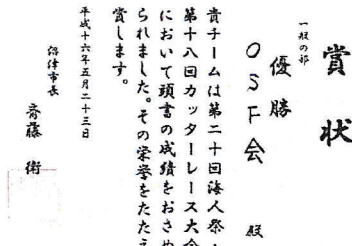 賞状
一般の部
優勝
OSF会 殿
貴チームは第二十回海人祭・
第十八回カッターレース大会
において頭書の成績をおさめ
られました。その栄誉をたたえ
賞します。
平成十六年五月二十三日
沼津市長
斎藤 衛